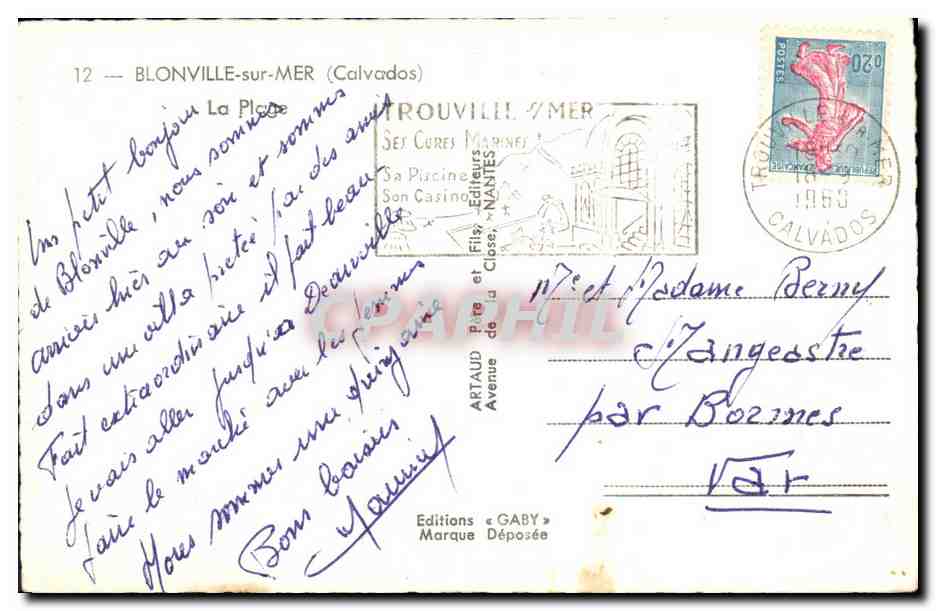 12 — BLONVILLE-sur-MER (Calvados)
La Plage
TROUVILLE S/MER
SES CURES MARINES
Sa Piscine
Son Casino
POSTES
0,20
REPUBLIQUE FRANÇAISE
TROUVILLE S MER
18 - 9
1960
CALVADOS
Un petit bonjour
de Blonville, nous sommes
arrivés hier au soir et sommes
dans une villa prêtée par des amis
Fait extraordinaire il fait beau
Je vais aller jusqu'à Deauville
faire le marché avec les
Nous sommes une quinzaine
Bons baisers
ARTAUD Père et Fils, Editeurs
Avenue de la Close, NANTES
Editions « GABY »
Marque Déposée
Mr et Madame Berny
Mangeastre
par Bormes
Var
CPAPHIL